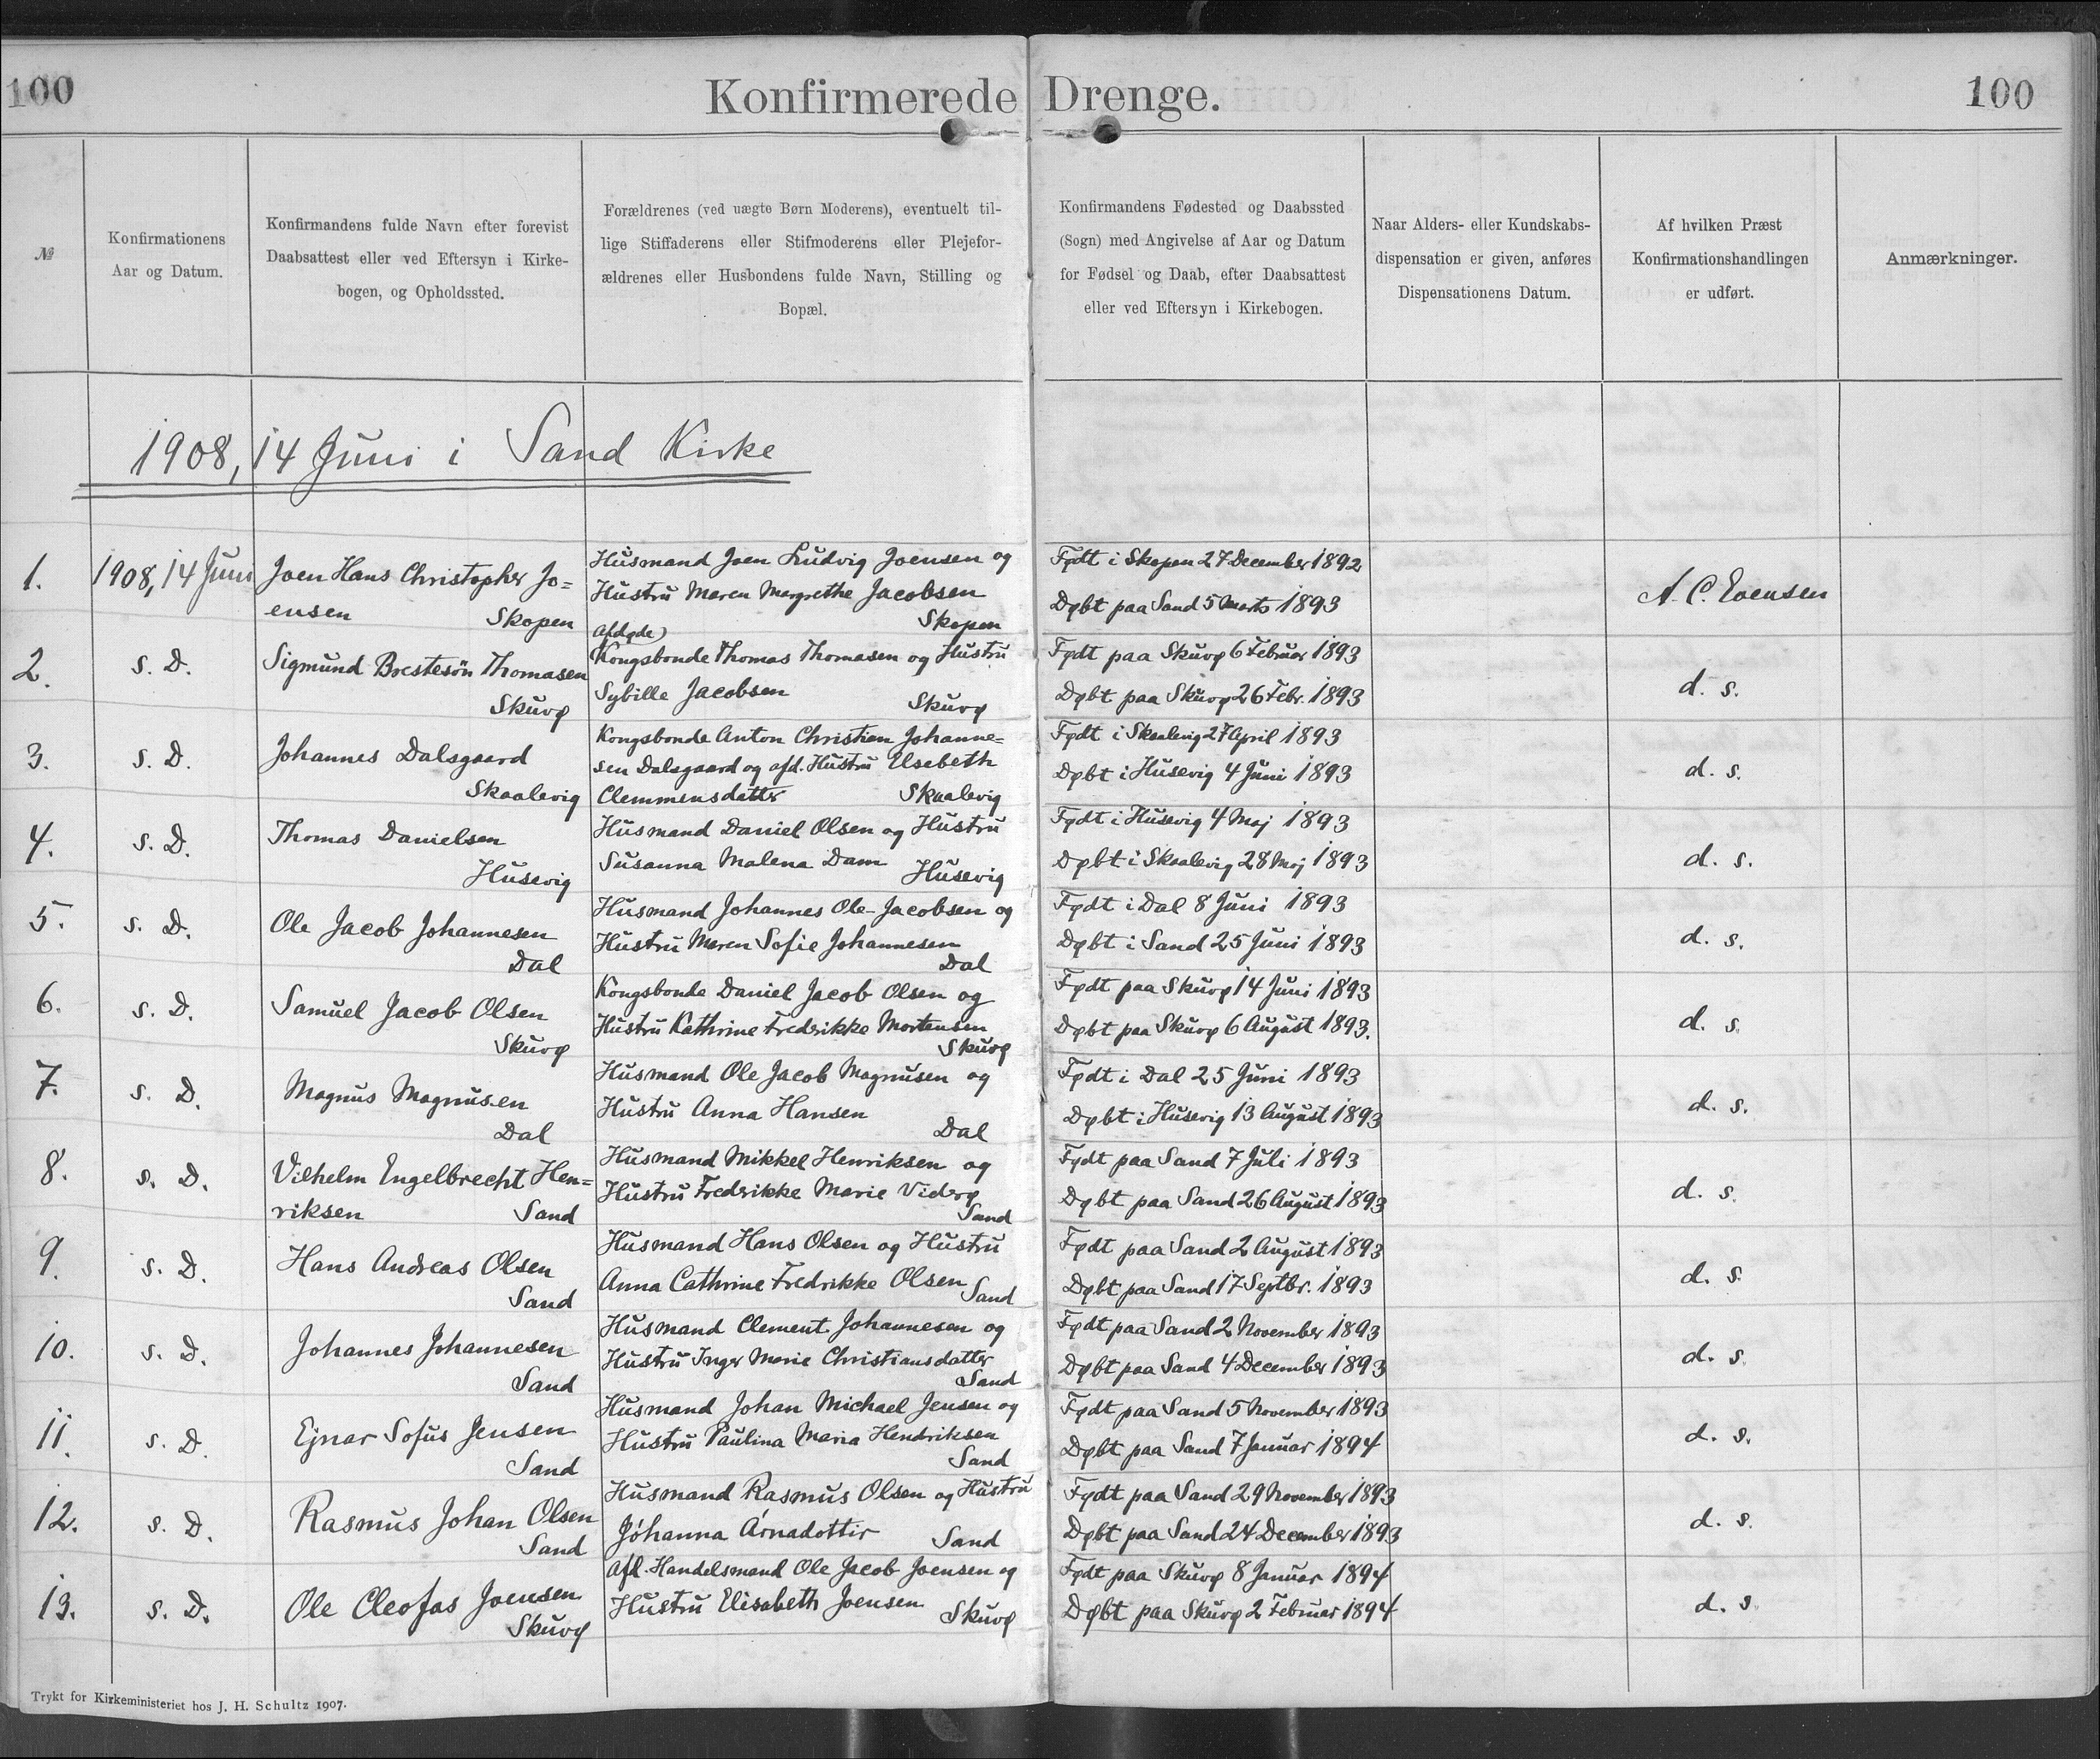 100
Konfirmerede Drenge.
100
№
Konfirmationens
Aar og Datum.
Konfirmandens fulde Navn efter forevist
Daabsattest eller ved Eftersyn i Kirke-
bogen, og Opholdssted.
Forældrenes (ved uægte Børn Moderens), eventuelt til-
lige Stiffaderens eller Stifmoderens eller Plejefor-
ældrenes eller Husbondens fulde Navn, Stilling og
Bopæl.
Konfirmandens Fødested og Daabssted
(Sogn) med Angivelse af Aar og Datum
for Fødsel og Daab, efter Daabsattest
eller ved Eftersyn i Kirkebogen.
Naar Alders- eller Kundskabs-
dispensation er given, anføres
Dispensationens Datum.
Af hvilken Præst
Konfirmationshandlingen
er udført.
Anmærkninger.
1908, 14 Juni i Sand Kirke
1.
1908, 14 Juni
Joen Hans Christopher Jo=
ensen Skopen
Husmand Joen Ludvig Joensen og
Hustru Maren Margrethe Jacobsen
Skopen
Født i Skopen 27 December 1892
Døbt paa Sand 5 Marts 1893
A. C. Evensen
2.
s. D.
Sigmund Brestesön Thomasen
Skuvø
Afdøde)
Kongsbonde Thomas Thomasen og Hustru
Sybille Jacobsen Skuvø
Født paa Skuvø 6 Februar 1893
Døbt paa Skuvø 26 Febr. 1893
d. s.
3.
s. D.
Johannes Dalsgaard
Skaalevig
Kongsbonde Anton Christian Johanne=
sen Dalsgaard og afd. Hustru Elsebeth
Clemmensdatter Skaalevig
Født i Skaalevig 27 April 1893
Døbt i Husevig 4 Juni 1893
d. s.
4.
s. D.
Thomas Danielsen
Husevig
Husmand Daniel Olsen og Hustru
Susanna Malena Dam Husevig
Født i Husevig 4 Maj 1893
Døbt i Skaalevig 28 Maj 1893
d. s.
5.
s. D.
Ole Jacob Johannesen
Dal
Husmand Johannes Ole Jacobsen og
Hustru Maren Sofie Johannesen
Dal
Født i Dal 8 Juni 1893
Døbt i Sand 25 Juni 1893
d. s.
6.
s. D.
Samuel Jacob Olsen
Skuvø
Kongsbonde Daniel Jacob Olsen og
Hustru Kathrine Fredrikke Mortensen
Skuvø
Født paa Skuvø 14 Juni 1893
Døbt paa Skuvø 6 August 1893.
d. s.
7.
s. D.
Magnus Magnusen
Dal
Husmand Ole Jacob Magnusen og
Hustru Anna Hansen Dal
Født i Dal 25 Juni 1893
Døbt i Husevig 13 August 1893
d. s.
8.
s. D.
Vilhelm Engelbrecht Hen=
riksen Sand
Husmand Mikkel Henriksen og
Hustru Fredrikke Marie Viderø
Sand
Født paa Sand 7 Juli 1893
Døbt paa Sand 26 August 1893
d. s.
9.
s. D.
Hans Andreas Olsen
Sand
Husmand Hans Olsen og Hustru
Anna Cathrine Fredrikke Olsen Sand
Født paa Sand 2 August 1893
Døbt paa Sand 17 Septbr. 1893
d. s.
10.
s. D.
Johannes Johannesen
Sand
Husmand Clement Johannesen og
Hustru Inger Marie Christiansdatter
Sand
Født paa Sand 2 November 1893
Døbt paa Sand 4 December 1893
d. s.
11.
s. D.
Ejnar Sofus Jensen
Sand
Husmand Johan Michael Jensen og
Hustru Paulina Maria Hendriksen
Sand
Født paa Sand 5 November 1893
Døbt paa Sand 7 Januar 1894
d. s.
12.
s. D.
Rasmus Johan Olsen
Sand
Husmand Rasmus Olsen og Hustru
Jóhanna Árnadottir Sand
Født paa Sand 29 November 1893
Døbt paa Sand 24 December 1893
d. s.
13.
s. D.
Ole Cleofas Joensen
Skuvø
Afd. Handelsmand Ole Jacob Joensen og
Hustru Elisabeth Joensen Skuvø
Født paa Skuvø 8 Januar 1894
Døbt paa Skuvø 2 Februar 1894
d. s.
Trykt for Kirkeministeriet hos J. H. Schultz 1907.